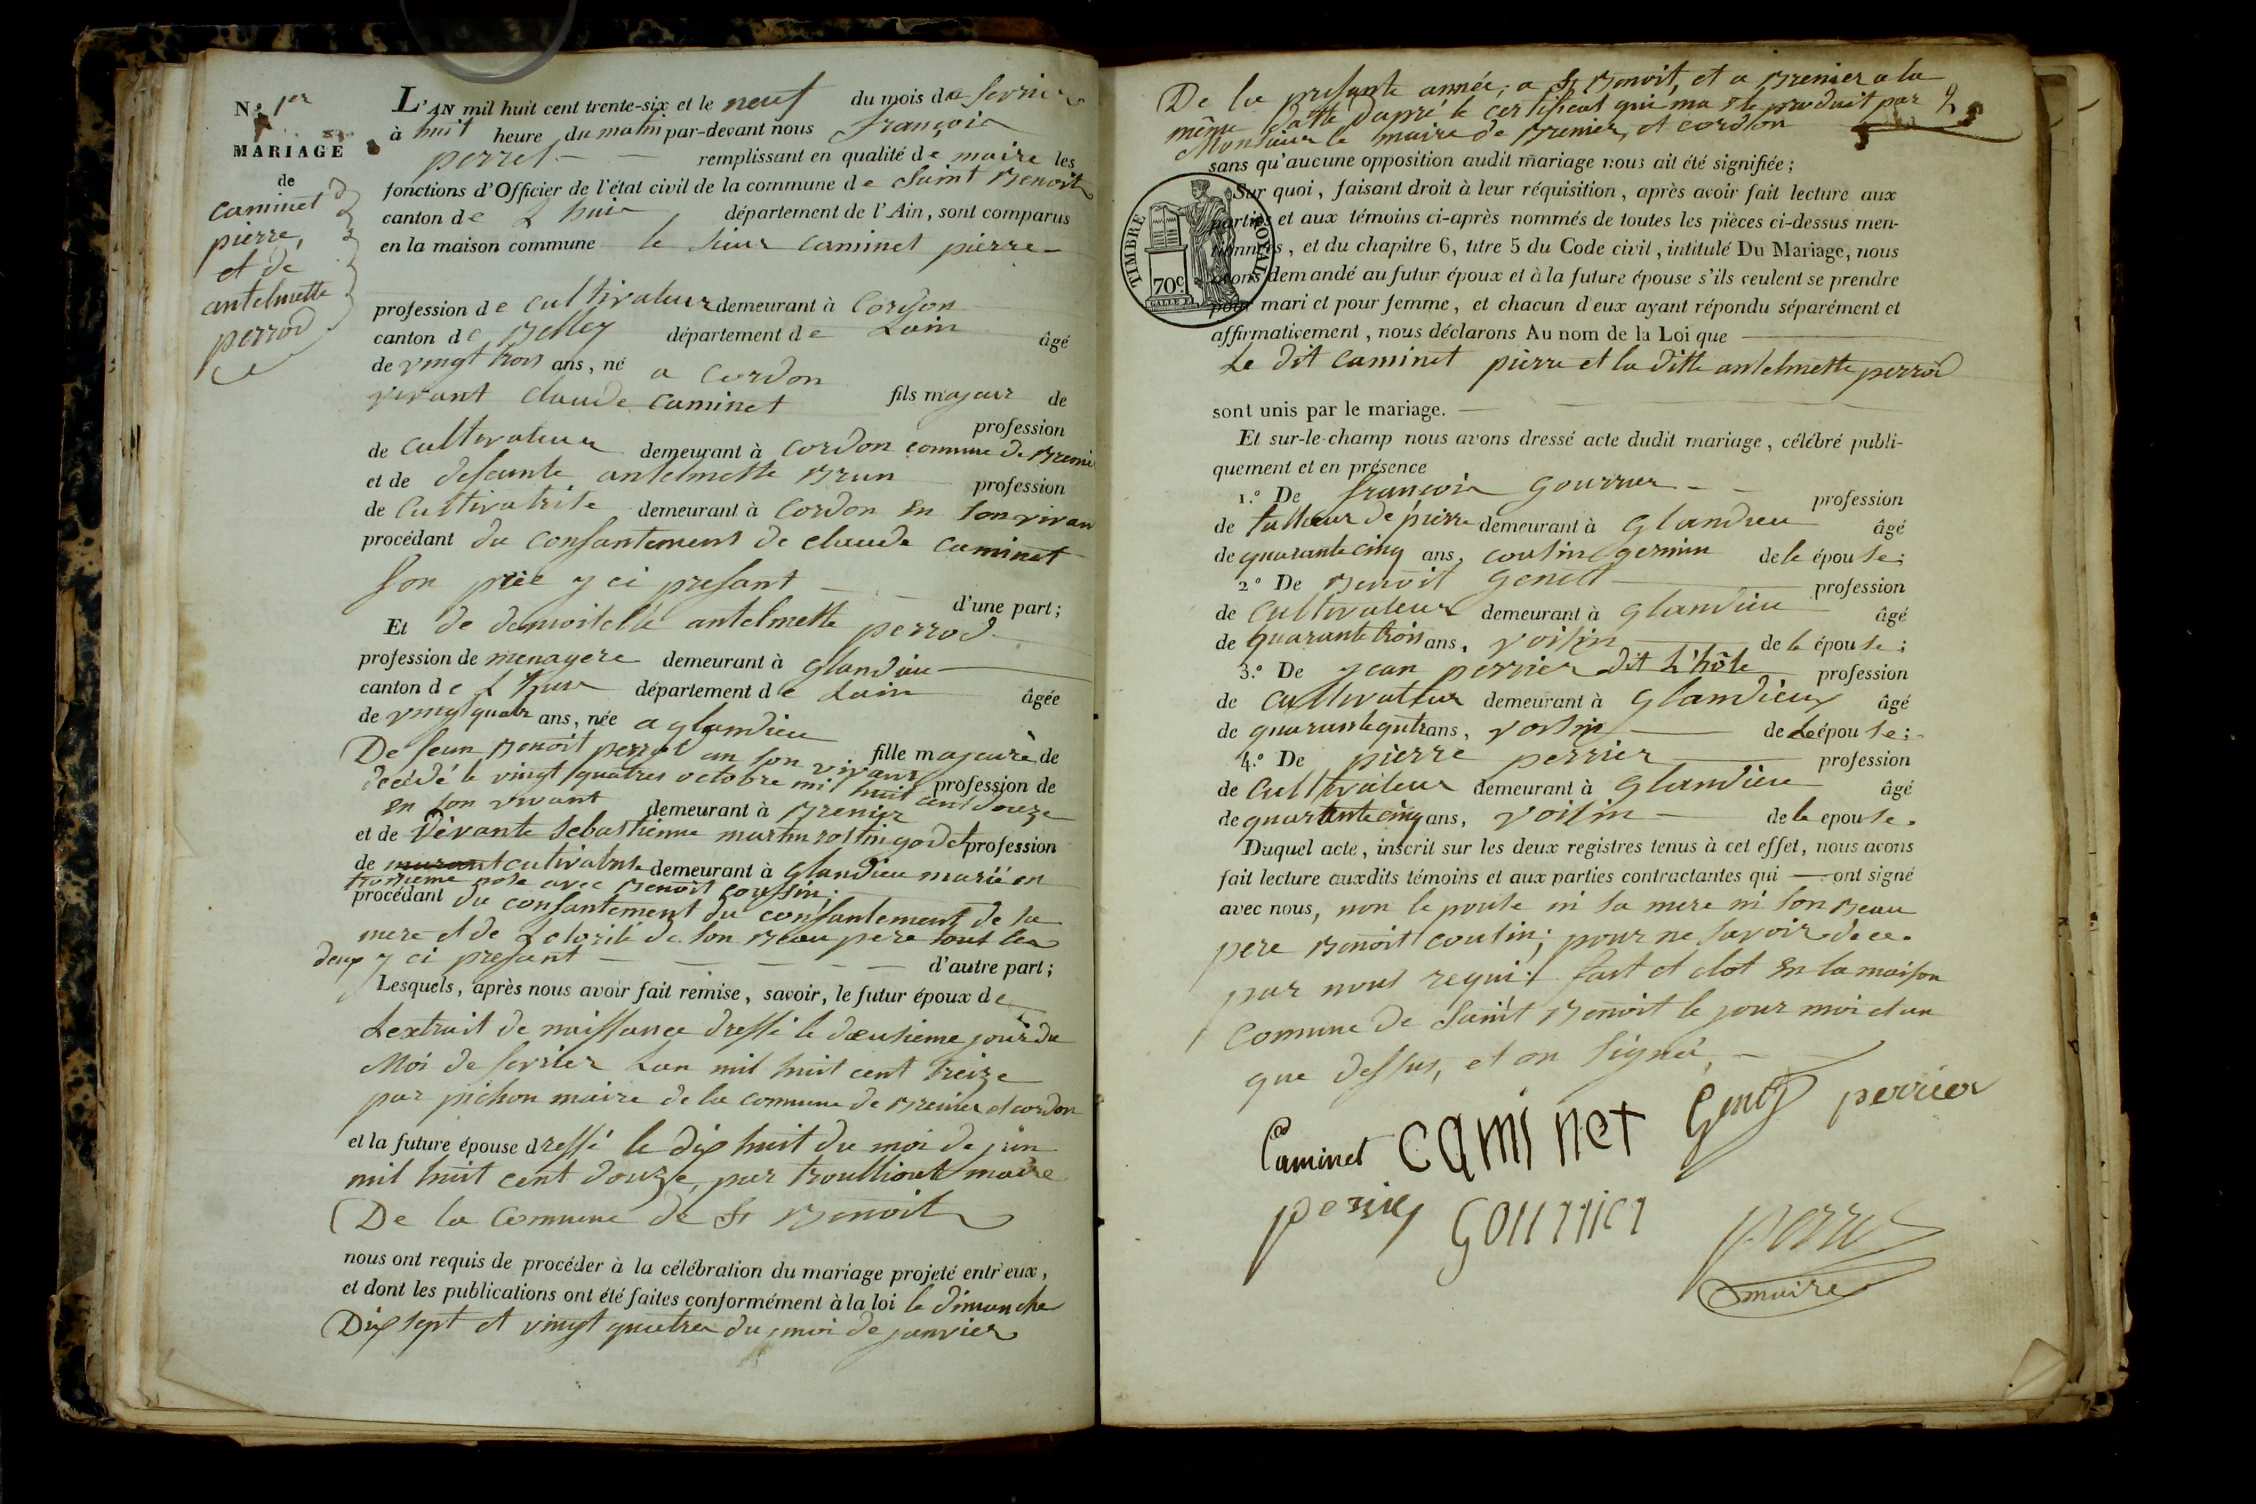 N.º 1er
MARIAGE
de
caminet
pierre,
et de
antelmette
perrod
L'AN mil huit cent trente-six et le neuf du mois de fevrier
à huit heure du matin par-devant nous françois
perret remplissant en qualité de maire les
fonctions d'Officier de l'état civil de la commune de Saint Benoit
canton de L huis département de l'Ain, sont comparus
en la maison commune le sieur caminet pierre
profession de cultivateur demeurant à Cordon
canton de Belley département de Lain âgé
de vingt trois ans, né a cordon
vivant claude caminet fils majeur de
profession
de cultivateur demeurant à cordon commune de Breni
et de defunte antelmette Brun profession
de Cultivatrise demeurant à Cordon en son vivan
procédant du consantement de claude caminet
son père y ci presant d'une part;
Et de demoiselle antelmette perrod
profession de menagere demeurant à glandieu
canton de L huis département de Lain âgée
de vingt quatr ans, née a glandieu
De feun Benoit perrod an son vivant fille majeure de
décédé le vingt quatres octobre mil huit cent douze profession de
en son vivant demeurant à Brenier
et de vivante sebastienne martin rostingodet profession
de cultivatrise demeurant à glandieu marié en
troisieme nose avec Benoit coussin;
procédant du consantement du consantement de sa
mere et de Lotorité de son Beau pere tout les
deux y ci presant d'autre part;
Lesquels, après nous avoir fait remise, savoir, le futur époux de
Lextrait de naissance dressé le deusieme jour du
Moi de fevrier Lan mil huit cent treize
par pichon maire de la commune de Brenier et cordon
et la future épouse dressé le dix huit du moi de juin
mil huit cent douze, par troulliout maire
De la Commune de St Benoit
nous ont requis de procéder à la célébration du mariage projeté entr'eux,
et dont les publications ont été faites conformément à la loi le dimanche
Dix sept et vingt quatre du moi de janvier
De la presante année, a St Benoit, et a Brenier a la
même datte dapré le certificat qui ma été produit par
Monsieur le maire de Brenier, et cordon
sans qu'aucune opposition audit mariage nous ait été signifiée;
TIMBRE ROYAL
70c.
Sur quoi, faisant droit à leur réquisition, après avoir fait lecture aux
parties et aux témoins ci-après nommés de toutes les pièces ci-dessus men-
tionnées, et du chapitre 6, titre 5 du Code civil, intitulé Du Mariage, nous
avons demandé au futur époux et à la future épouse s'ils veulent se prendre
pour mari et pour femme, et chacun d'eux ayant répondu séparément et
affirmativement, nous déclarons Au nom de la Loi que
Le dit caminet pierre et la ditte antelmette perrod
sont unis par le mariage.
Et sur-le-champ nous avons dressé acte dudit mariage, célébré publi-
quement et en présence
1.º De françois gourrier profession
de talleur de pierre demeurant à glandieu âgé
de quarante cinq ans, cousin germin de le épouse;
2.º De Benoit Genet profession
de Cultivateur demeurant à glandieu âgé
de quarante trois ans, voisin de le épouse;
3.º De jean perrier dit L'hôte profession
de Cultivateur demeurant à glandieu âgé
de quarante qutr ans, voisin de le épouse;
4.º De pierre perrier profession
de Cultivateur demeurant à glandieu âgé
de quarante cinq ans, voisin de le epouse.
Duquel acte, inscrit sur les deux registres tenus à cet effet, nous avons
fait lecture auxdits témoins et aux parties contractantes qui ont signé
avec nous, non le pouse ni sa mere ni son Beau
pere Benoit cousin; pour ne savoir de ce
par nous requi. fait et clot en la maison
Commune de Saint Benoit le jour moi et an
que dessus, et on signé,
Caminet caminet Genet perrier
perrier gourrier perret
maire